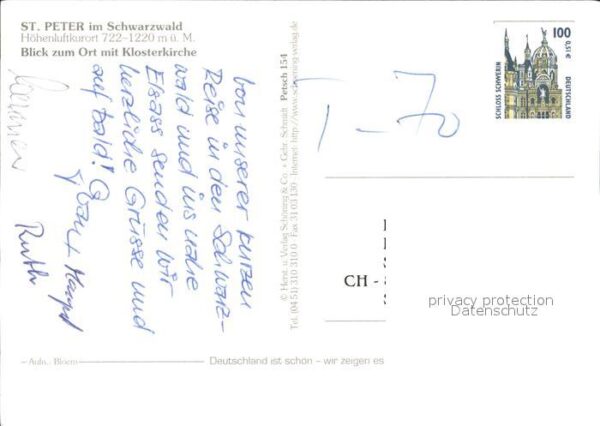 ST. PETER im Schwarzwald
Höhenluftkurort 722–1220 m ü. M.
Blick zum Ort mit Klosterkirche
von unserer kurzen
Reise in den Schwarz-
wald und ins nahe
Elsass senden wir
herzliche Grüsse und
auf bald!
Ruth
© Herst. u. Verlag Schöning & Co. + Gebr. Schmidt Petsch 154
Tel. (04 51) 310 310 0 · Fax 31 03 130 · Internet: http://www.schoening-verlag.de
T – 70
100
0,51€
SCHLOSS SCHWERIN
DEUTSCHLAND
CH -
privacy protection
Datenschutz
– Aufn.: Bloem
Deutschland ist schön – wir zeigen es